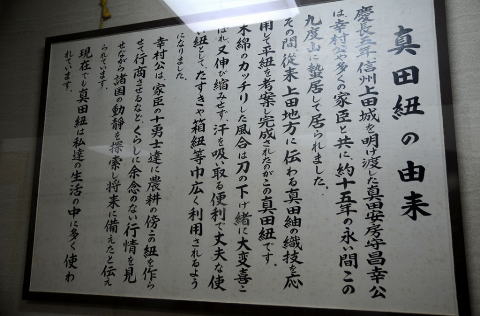 真田紐の由来
慶長五年信州上田城を明け渡した真田安房守昌幸公
は、幸村公や多くの家臣と共に、約十五年の永い間この
九度山に蟄居して居られました。
その間従来上田地方に伝わる真田紬の織技を応
用して平紐を考案し完成されたのがこの真田紐です。
木綿のカッチリした風合は刀の下げ緒に大変喜こ
ばれ又伸び縮みせず、汗を吸い取る便利で丈夫な使
い紐として、たすきや箱紐等巾広く利用されるよう
になりました。
幸村公は、家臣の十勇士達に農耕の傍この紐を作ら
せて行商させるなど、くらしに余念のない行情を見
せながら諸国の動静を探索し将来に備えたと伝え
られています。
現在でも真田紐は私達の生活の中に多く使わ
れています。